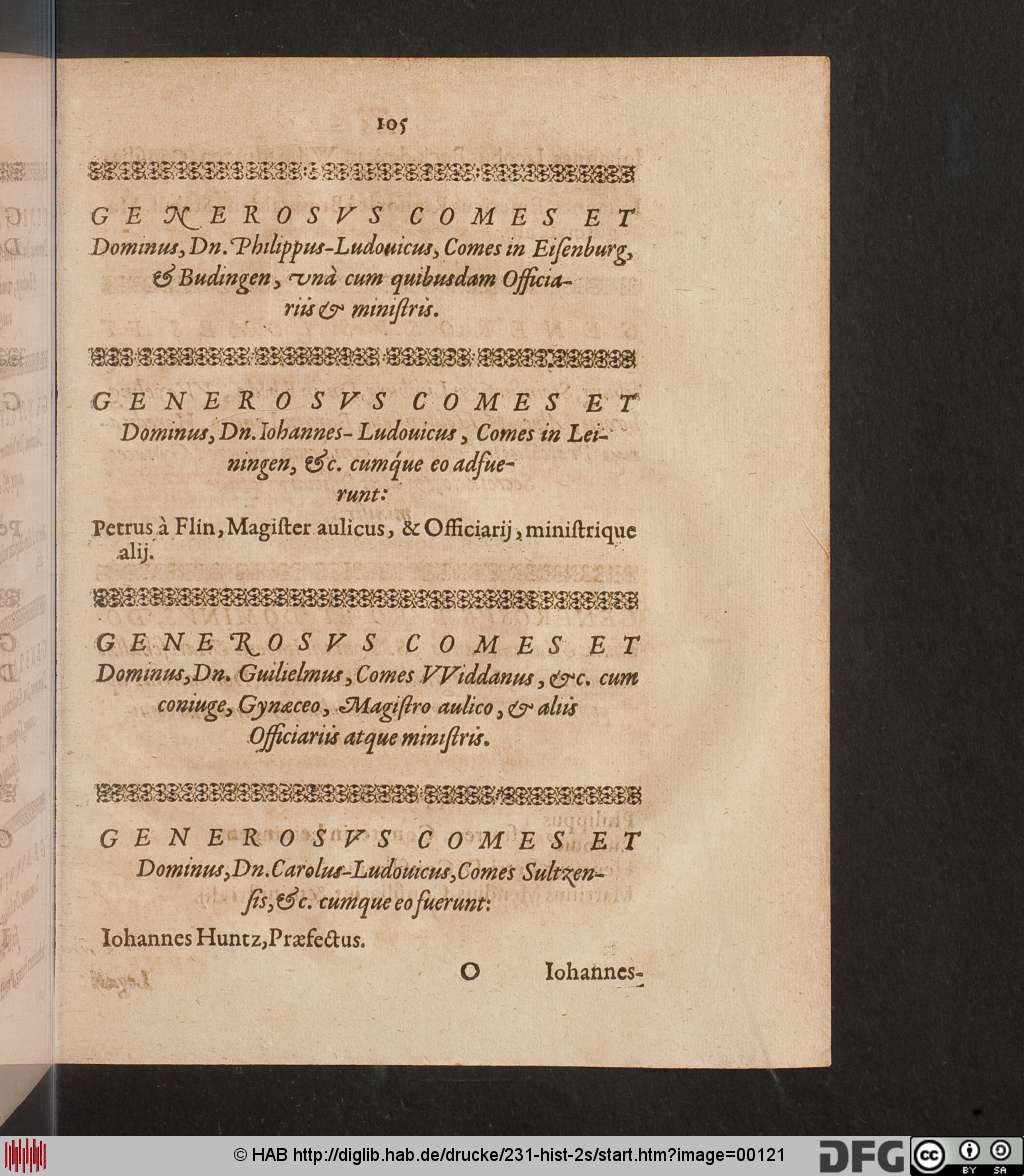 105
GENEROSVS COMES ET
Dominus, Dn. Philippus-Ludouicus, Comes in Eiſenburg,
& Budingen, vnà cum quibusdam Officia-
riis & miniſtris.
GENEROSVS COMES ET
Dominus, Dn. Iohannes- Ludouicus, Comes in Lei-
ningen, &c. cumq́ue eo adfue-
runt:
Petrus à Flin, Magiſter aulicus, & Officiarij, miniſtrique
alij.
GENEROSVS COMES ET
Dominus, Dn. Guilielmus, Comes VViddanus, &c. cum
coniuge, Gynæceo, Magiſtro aulico, & aliis
Officiariis atque miniſtris.
GENEROSVS COMES ET
Dominus, Dn. Carolus-Ludouicus, Comes Sultzen-
ſis, &c. cumque eo fuerunt:
Iohannes Huntz, Præfectus.
O Iohannes-
© HAB http://diglib.hab.de/drucke/231-hist-2s/start.htm?image=00121
DFG cc BY SA